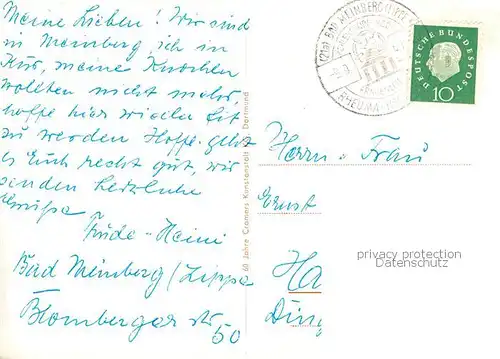 Meine Lieben! Wir sind
in Meinberg, ich in
Kur, meine Knochen
wollten nicht mehr,
hoffe hier wieder fit
zu werden. Hoffe geht
es Euch recht gut, wir
senden herzliche
Grüße
Trude - Heini
Bad Meinberg/Lippe
Blomberger str
50
60 Jahre Cramers Kunstanstalt Dortmund
(21a) BAD MEINBERG (LIPPE)
RHEUMA
DEUTSCHE BUNDESPOST
10
Herrn u. Frau
Ernst
privacy protection
Datenschutz
Ha
Din